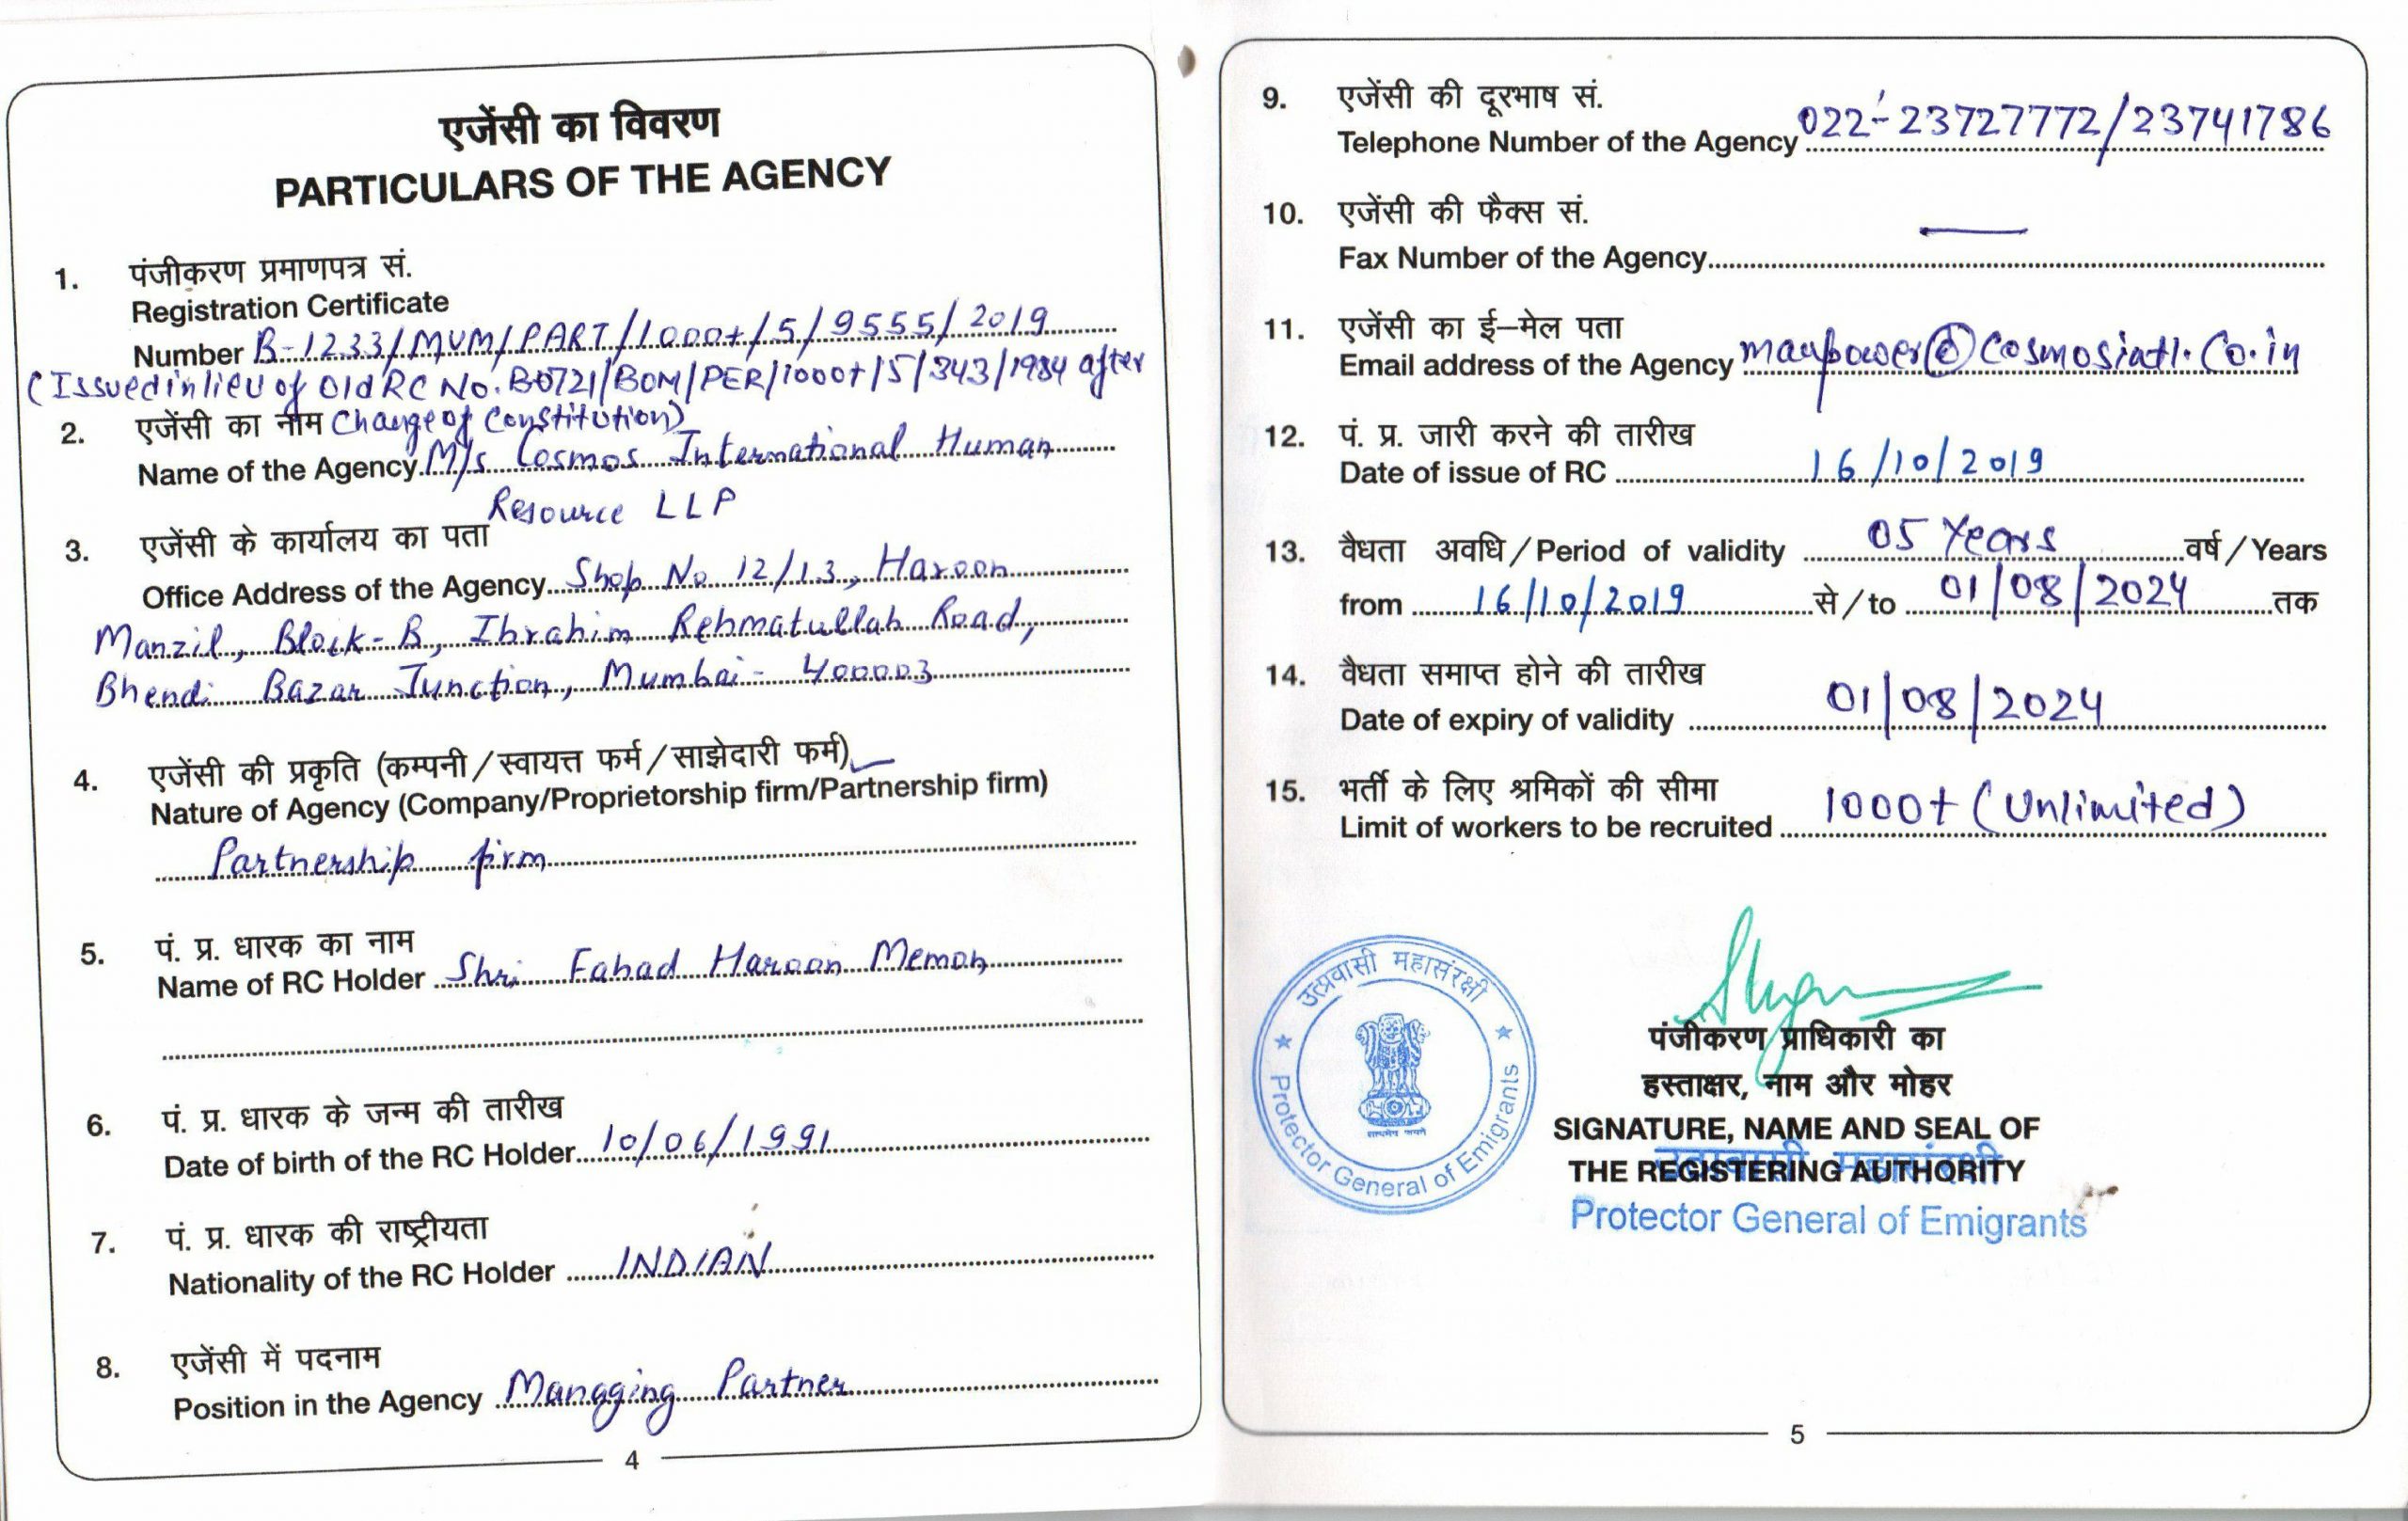 एजेंसी का विवरण
PARTICULARS OF THE AGENCY
1. पंजीकरण प्रमाणपत्र सं.
Registration Certificate
Number B-1233/MUM/PART/1000+/5/9555/2019
(Issued in lieu of Old RC No. B0721/BOM/PER/1000+/5/343/1984 after
Change of Constitution)
2. एजेंसी का नाम
Name of the Agency M/s Cosmos International Human
Resource LLP
3. एजेंसी के कार्यालय का पता
Office Address of the Agency Shop No 12/13, Haroon
Manzil, Block-B, Ibrahim Rehmatullah Road,
Bhendi Bazar Junction, Mumbai- 400003
4. एजेंसी की प्रकृति (कम्पनी/स्वायत्त फर्म/साझेदारी फर्म)
Nature of Agency (Company/Proprietorship firm/Partnership firm)
Partnership firm
5. पं. प्र. धारक का नाम
Name of RC Holder Shri Fahad Haroon Memon
6. पं. प्र. धारक के जन्म की तारीख
Date of birth of the RC Holder 10/06/1991
7. पं. प्र. धारक की राष्ट्रीयता
Nationality of the RC Holder INDIAN
8. एजेंसी में पदनाम
Position in the Agency Managing Partner
4
9. एजेंसी की दूरभाष सं.
Telephone Number of the Agency 022-23727772/23741786
10. एजेंसी की फैक्स सं.
Fax Number of the Agency —
11. एजेंसी का ई-मेल पता
Email address of the Agency manpower@cosmosiatl.co.in
12. पं. प्र. जारी करने की तारीख
Date of issue of RC 16/10/2019
13. वैधता अवधि/Period of validity 05 Years वर्ष/Years
from 16/10/2019 से/to 01/08/2024 तक
14. वैधता समाप्त होने की तारीख
Date of expiry of validity 01/08/2024
15. भर्ती के लिए श्रमिकों की सीमा
Limit of workers to be recruited 1000+ (Unlimited)
उत्प्रवासी महासंरक्षी
Protector General of Emigrants
सत्यमेव जयते
पंजीकरण प्राधिकारी का
हस्ताक्षर, नाम और मोहर
SIGNATURE, NAME AND SEAL OF
THE REGISTERING AUTHORITY
उत्प्रवासी महासंरक्षी
Protector General of Emigrants
5